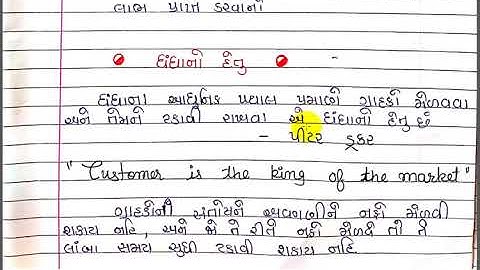 લાભ પ્રાપ્ત કરવાનો
ધંધાનો હેતુ -
ધંધાના આધુનિક ખ્યાલ પ્રમાણે ગ્રાહકો મેળવવા
અને તેમને ટકાવી રાખવા એ ધંધાનો હેતુ છે
- પીટર ડ્રકર
"Customer is the king of the market"
ગ્રાહકોની સંતોષને અવગણીને નફો મેળવી
શકાય નહિ, અને જો તે રીતે નફો મેળવે તો તે
લાંબા સમય સુધી ટકાવી શકાય નહિ.